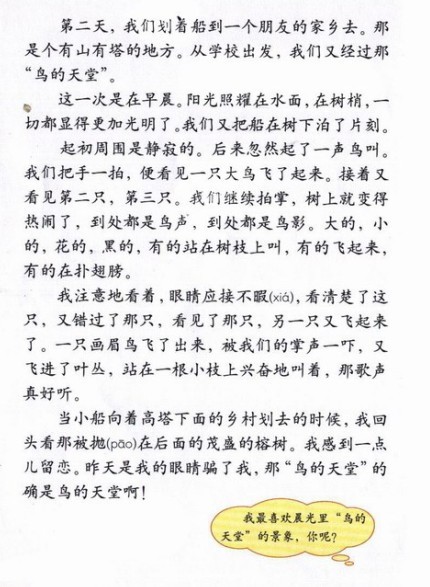 第二天，我们划着船到一个朋友的家乡去。那
是个有山有塔的地方。从学校出发，我们又经过那
“鸟的天堂”。
这一次是在早晨。阳光照耀在水面，在树梢，一
切都显得更加光明了。我们又把船在树下泊了片刻。
起初周围是静寂的。后来忽然起了一声鸟叫。
我们把手一拍，便看见一只大鸟飞了起来。接着又
看见第二只，第三只。我们继续拍掌，树上就变得
热闹了，到处都是鸟声，到处都是鸟影。大的，小
的，花的，黑的，有的站在树枝上叫，有的飞起来，
有的在扑翅膀。
我注意地看着，眼睛应接不暇(xiá)，看清楚了这
只，又错过了那只，看见了那只，另一只又飞起来
了。一只画眉鸟飞了出来，被我们的掌声一吓，又
飞进了叶丛，站在一根小枝上兴奋地叫着，那歌声
真好听。
当小船向着高塔下面的乡村划去的时候，我回
头看那被抛(pāo)在后面的茂盛的榕树。我感到一点
儿留恋。昨天是我的眼睛骗了我，那“鸟的天堂”的
确是鸟的天堂啊！
我最喜欢晨光里“鸟的
天堂”的景象，你呢？